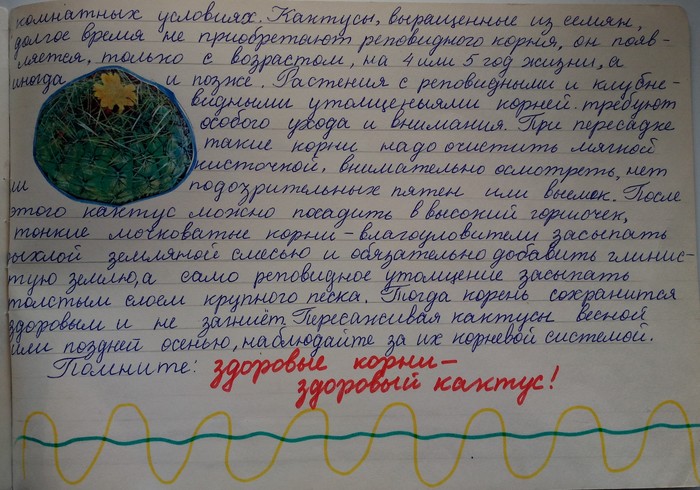 комнатных условиях. Кактусы, выращенные из семян,
долгое время не приобретают реповидного корня, он появ-
ляется, только с возрастом, на 4 или 5 год жизни, а
иногда и позже. Растения с реповидными и клубне-
видными утолщениями корней требуют
особого ухода и внимания. При пересадке
такие корни надо очистить мягкой
кисточкой, внимательно осмотреть, нет
ли подозрительных пятен или выемок. После
этого кактус можно посадить в высокий горшочек,
тонкие мочковатые корни - влагоуловители засыпать
рыхлой земляной смесью и обязательно добавить глинис-
тую землю, а само реповидное утолщение засыпать
толстым слоем крупного песка. Тогда корень сохранится
здоровым и не загниёт. Пересаживая кактусы весной
или поздней осенью, наблюдайте за их корневой системой.
Помните: здоровые корни -
здоровый кактус!